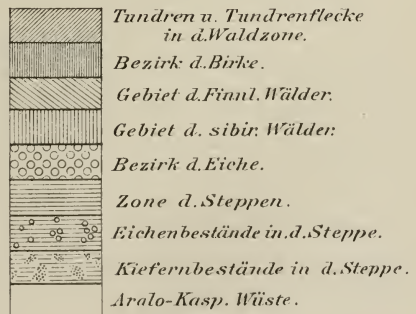 Tundren u. Tundrenflecke
in d. Waldzone.
Bezirk d. Birke.
Gebiet d. Finnl. Wälder.
Gebiet d. sibir. Wälder.
Bezirk d. Eiche.
Zone d. Steppen.
Eichenbestände in d. Steppe.
Kiefernbestände in d. Steppe.
Aralo-Kasp. Wüste.